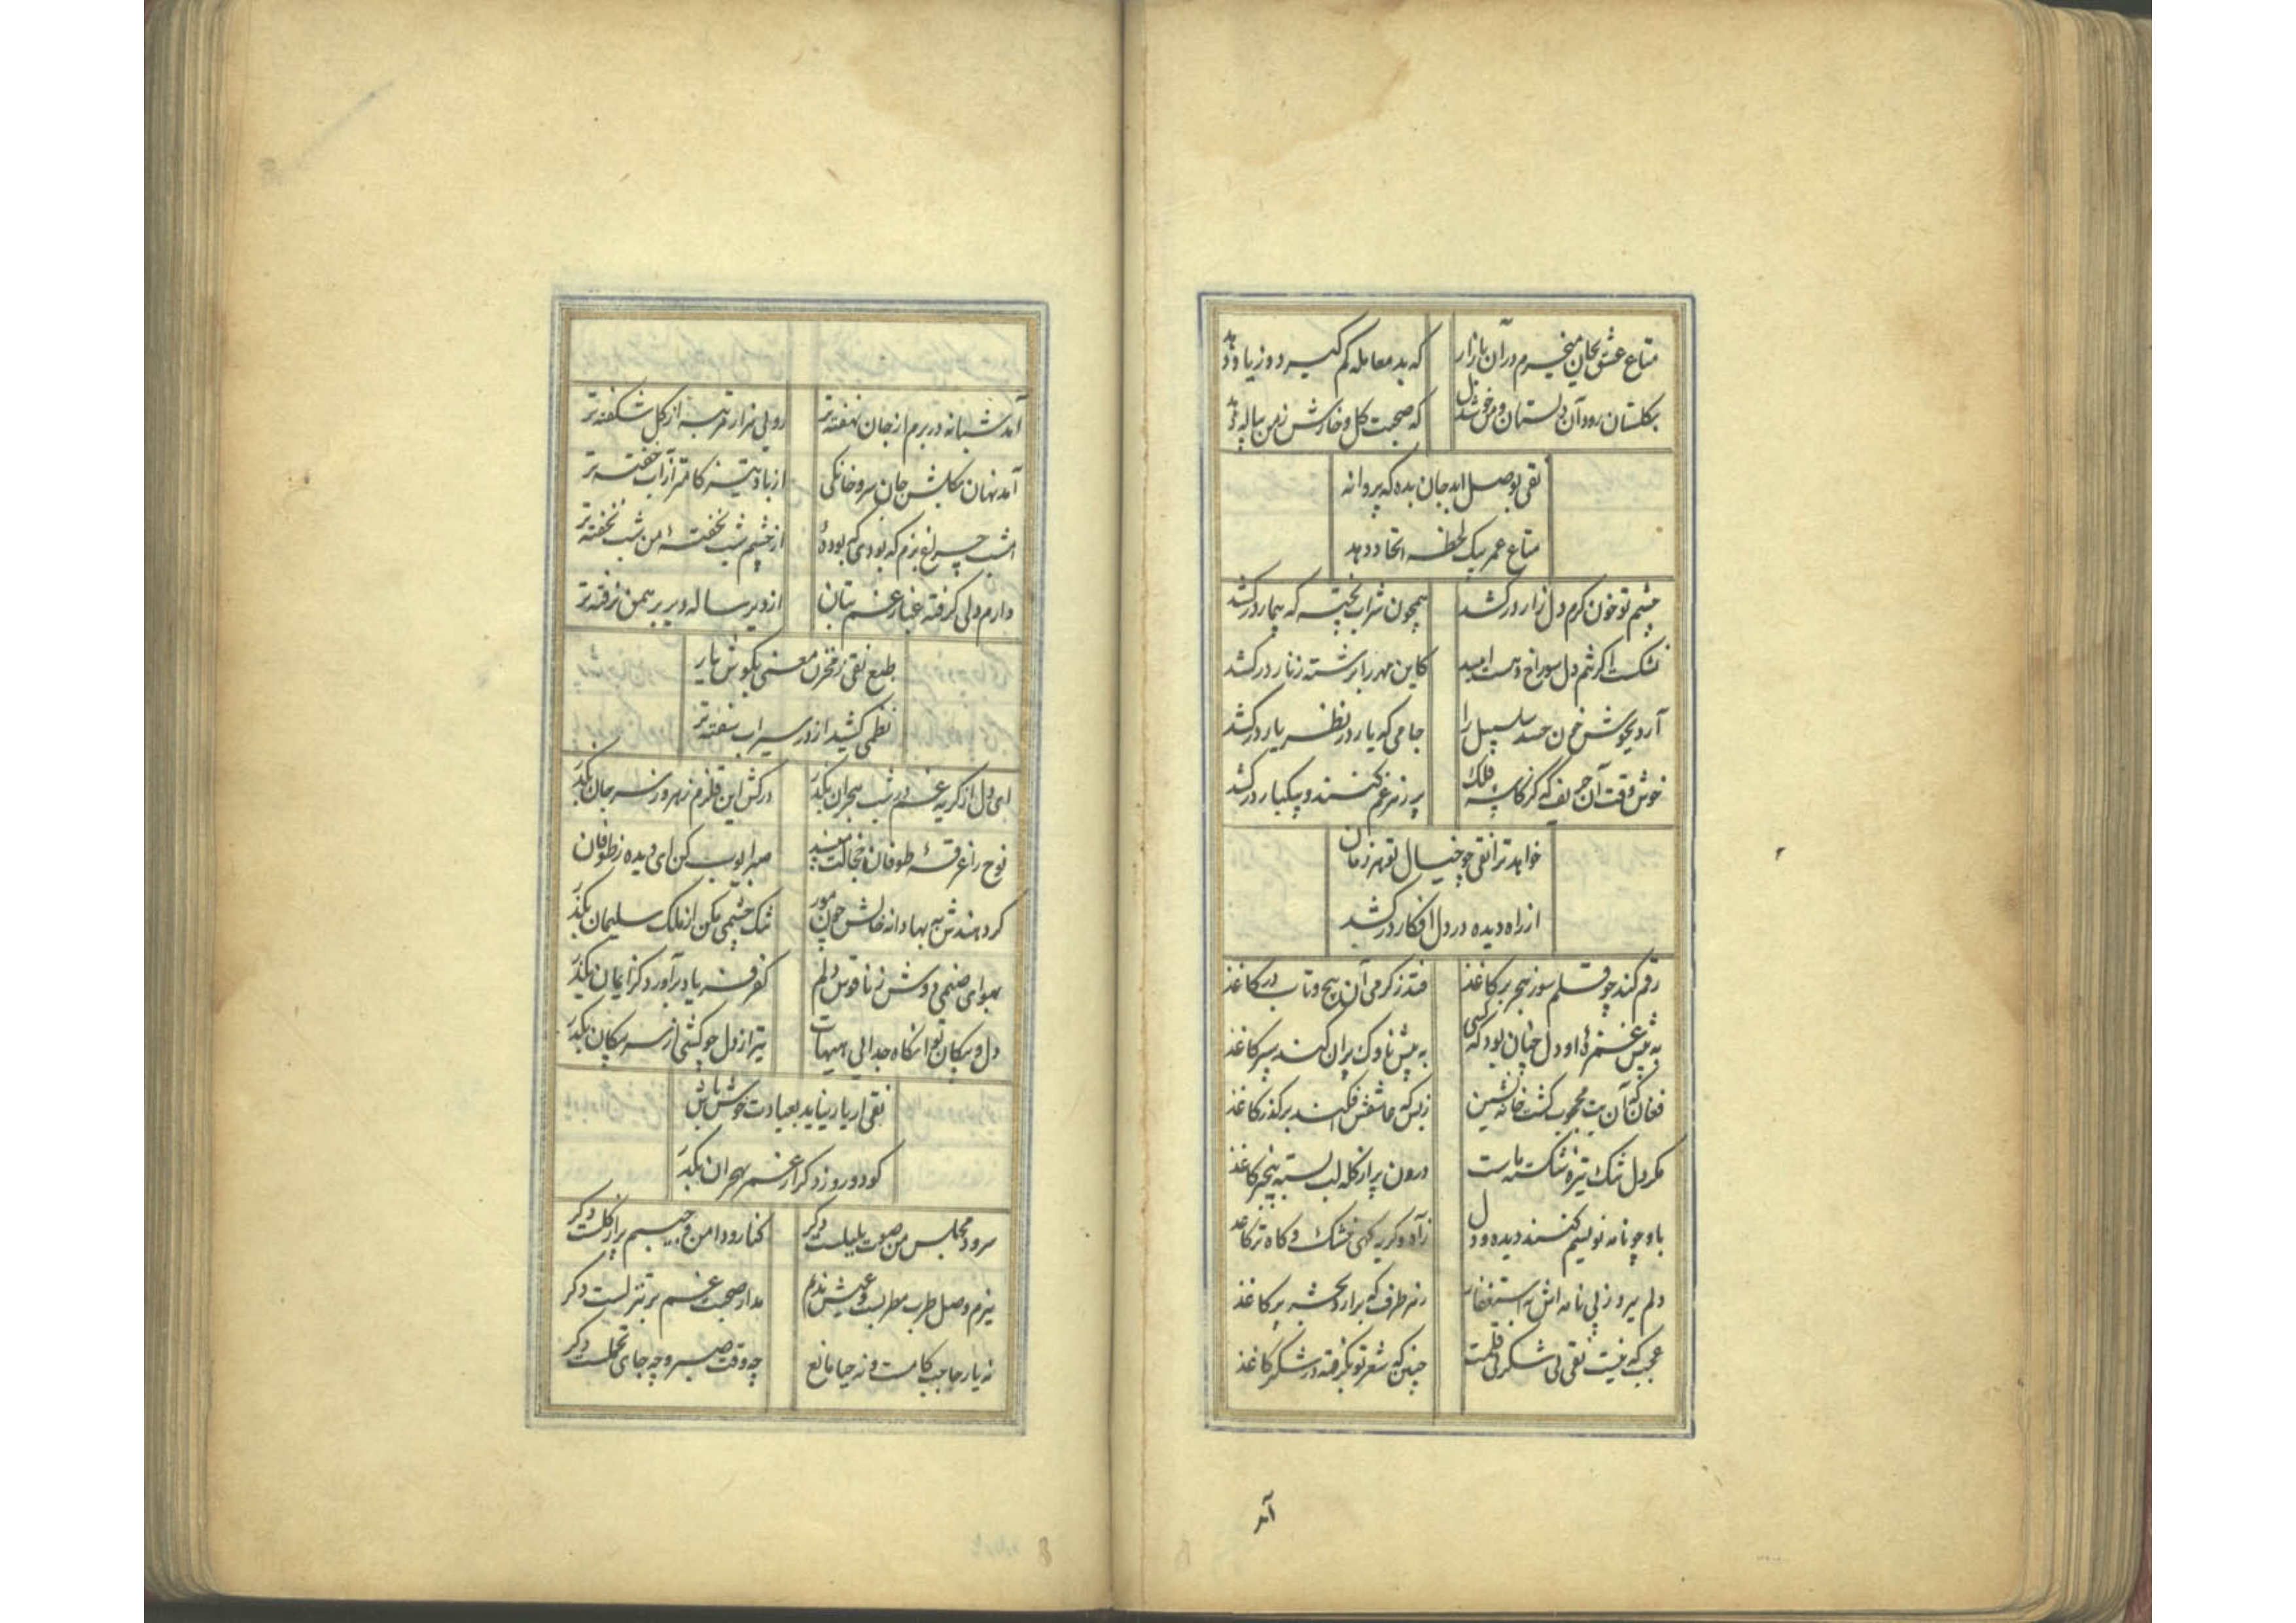 متاع عشق بجان میخرم در آن بازار که بد معامله کم گیرد و زیاد دهد
بگلستان رود آن دلستان و من خوشدل که صحبت گل و خارش ز من بیاد دهد
نقی بوصل اید جان بده که پروانه
متاع عمر بیک لحظه اتحاد دهد
چشم تو خون گرم دل زار درکشد همچون شراب پخته که بیمار درکشد
نشکفت اگر شم دل سوراخ دست امید کاین مهره را برشته زنار درکشد
آرد بجوش خون حسد سلسبیل را جامی که یار در نظر یار درکشد
خوش وقت آن حریف که گر کاسه فلک پر زهر غم کنند و بیکبار درکشد
خواهد ترا نقی چو خیال تو هر زمان
از راه دیده در دل افکار درکشد
رقم کند چو قلم سوز هجر بر کاغذ فتد ز گرمی آن پیچ و تاب در کاغذ
به پیش غمزه او دل چنان بود که کسی به پیش ناوک پران کند سپر کاغذ
فغان که آن بت محجوب گشت خانه نشین ز بس که عاشقش افکند بر گذر کاغذ
مگر دل تنک تیره شکسته ماست درون پر از گله لب بسته پنجر کاغذ
باو چو نامه نویسم کنند دیده و دل ز آه و گریه گهی خشک و گاه تر کاغذ
دلم برو ز پی نامه اش به استغفار ز هر طرف که برآرد بحشر پر کاغذ
عجب که نیست نقی نی شکر نی قلمت چنین که شعر تو بگرفته در شکر کاغذ
آمد
آمد شبانه در برم از جان نهفته تر رویی هزار مرتبه از گل شکفته تر
آمد نهان بگلشن جان سرو خانگی از باد تیزگام تر از آب خفته تر
امشب چراغ بزم که بودی که بوده از چشم شب نخفته من شب نخفته تر
دارم دلی گرفته غبار غم بتان از دیر ساله دیر برهمن نرفته تر
طبع نقی ز مخزن معنی بگوش یار
نظمی کشید از در سیراب سفته تر
ای دل از گریه غم در شب هجران بگذر درکش این قلزم زهر و ز سر جان بگذر
نوح را غرقه طوفان خجالت مپسند صبر ایوب کن ای دیده ز طوفان بگذر
گر دهندش به بها دانه خالش چون مور تنک چشمی مکن از ملک سلیمان بگذر
بهوای صنمی دوش ز ناقوس دلم کفر فریاد برآورد کز ایمان بگذر
دل و پیکان تو آنگاه جدایی هیهات تیر از دل چو کشی از سر پیکان بگذر
نقی ار یار نیاید بعیادت خوش باش
کو دو روز دگر از غم هجران بگذر
سرود مجلس من صوت بلبلست دگر کنار و دامن و جیبم پر از گلست دگر
بزم وصل طرب مطربست و عیش ندیم مدار صحبت غم بر تنزلست دگر
نه یار حاجب کامست و نه حیا مانع چه وقت صبر و چه جای تحملست دگر